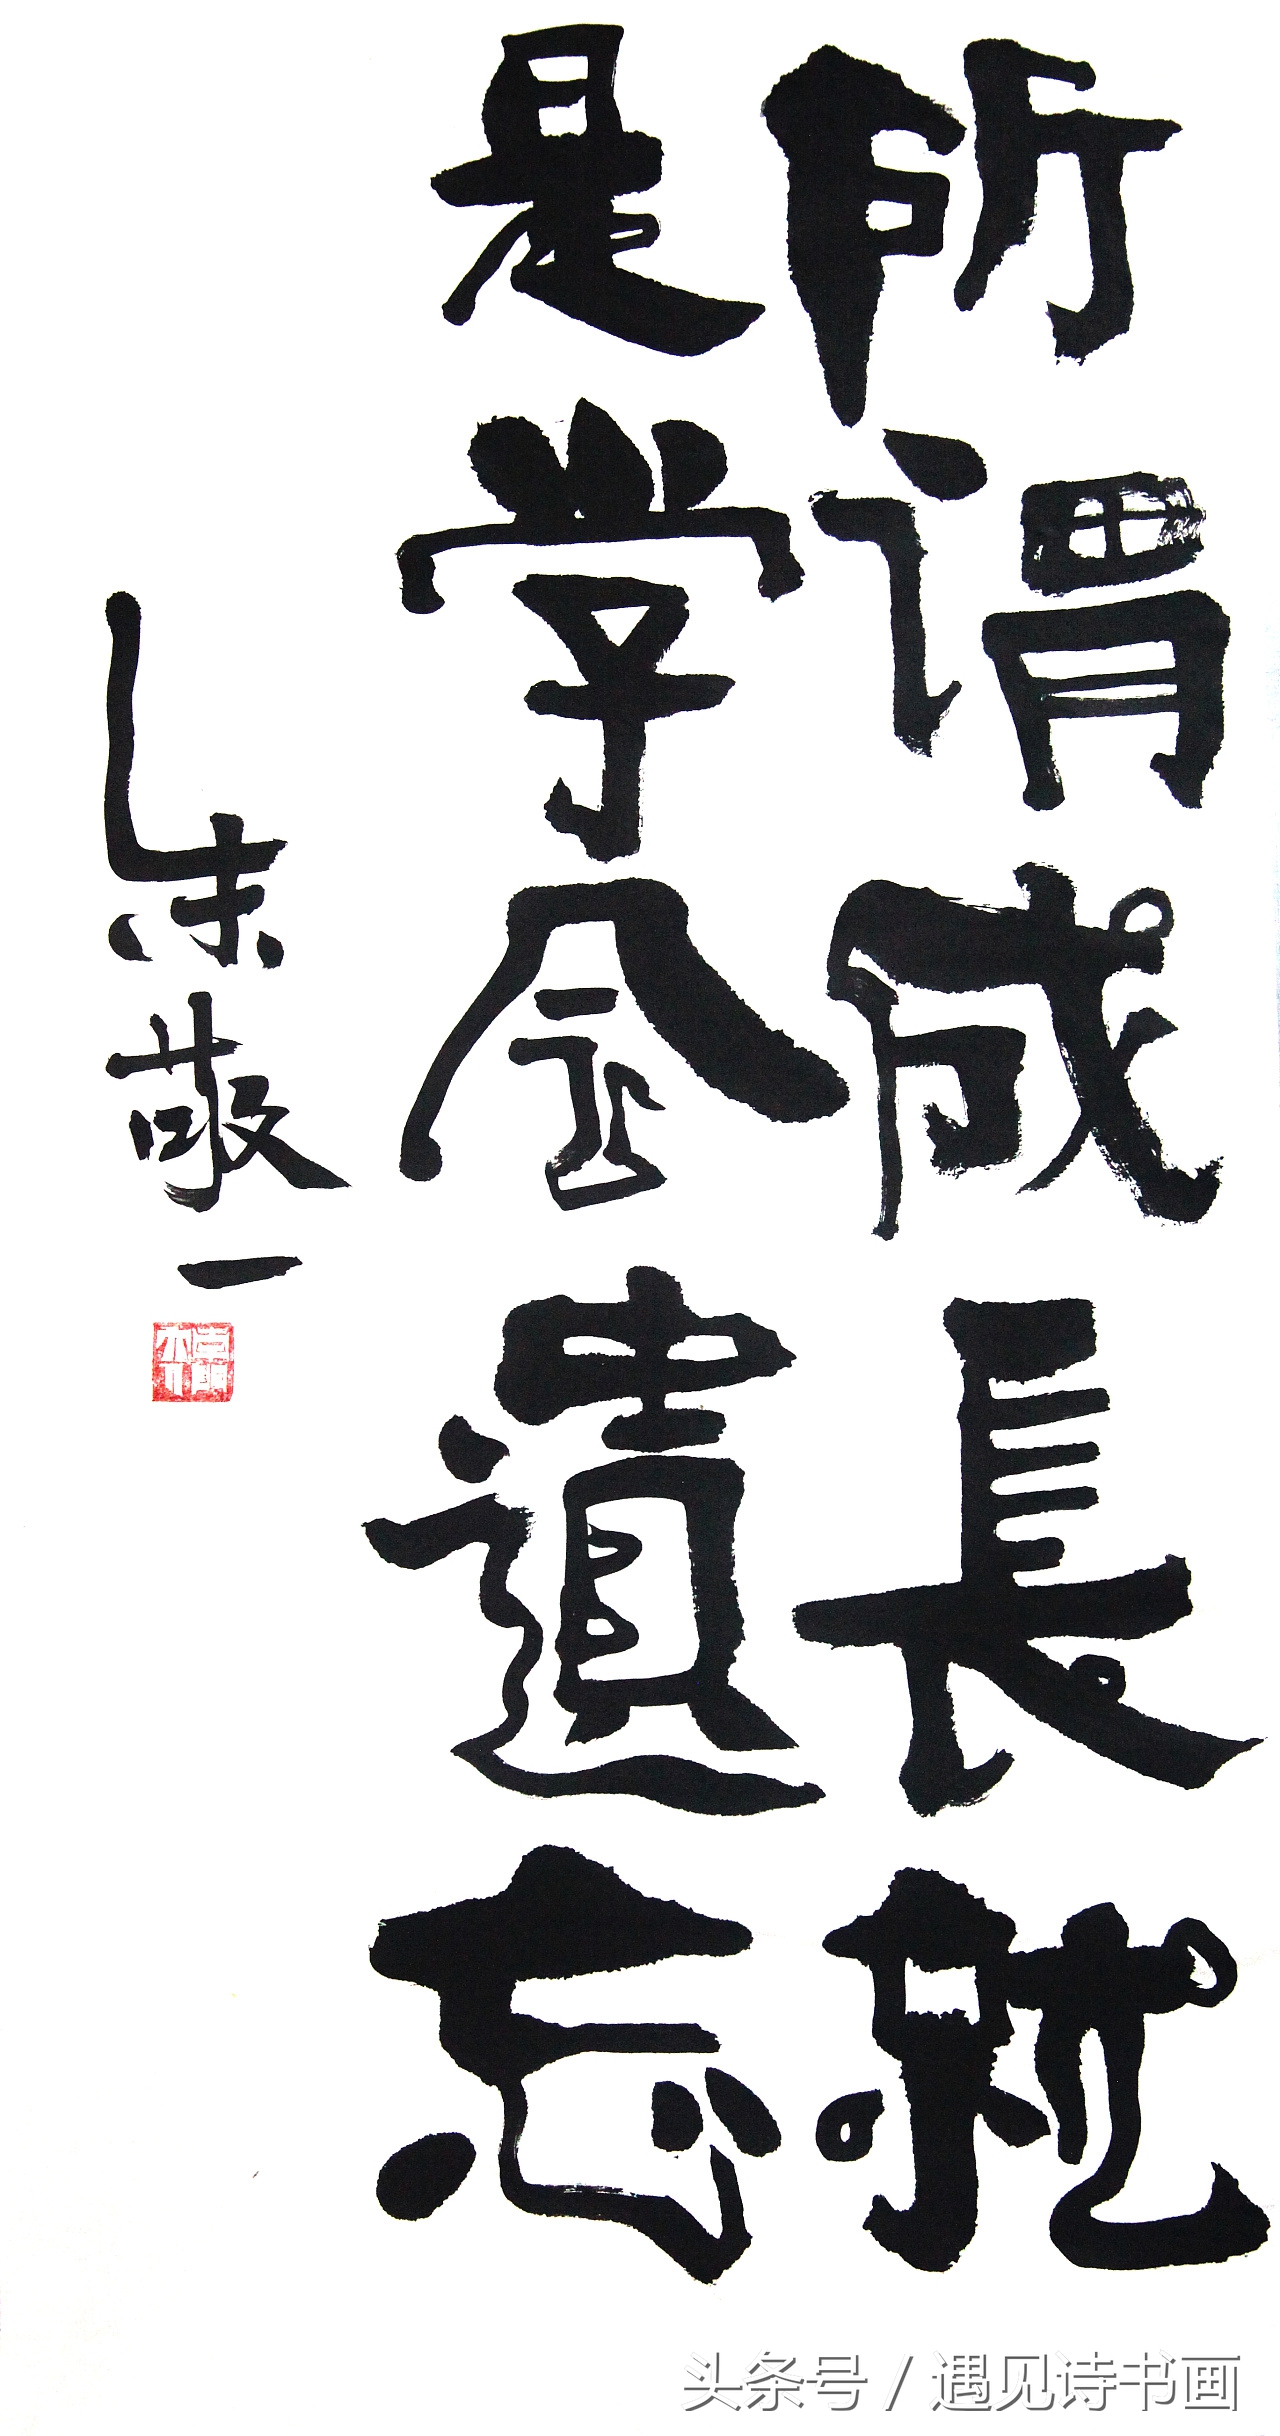 所谓成長就
是学会遺忘
朱敬一
头条号 / 遇见诗书画